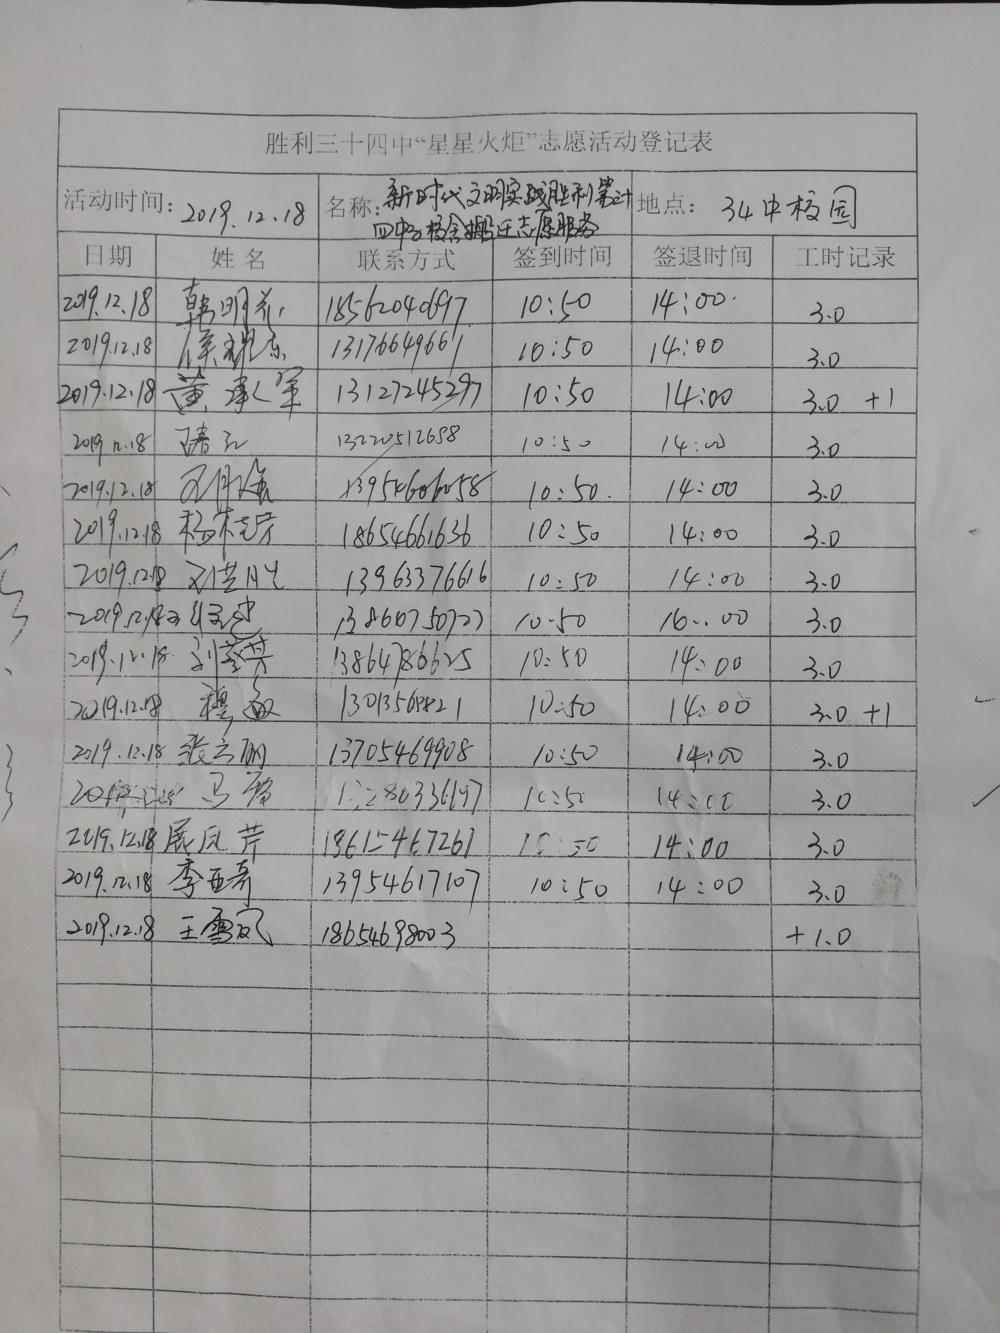 胜利三十四中“星星火炬”志愿活动登记表
活动时间: 2019.12.18 名称: 新时代文明实践胜利第卅 地点: 34中校园
四中校舍搬迁志愿服务
日期 姓名 联系方式 签到时间 签退时间 工时记录
2019.12.18 韩明 18562040697 10:50 14:00 3.0
2019.12.18 13176649661 10:50 14:00 3.0
2019.12.18 黄承军 13127245297 10:50 14:00 3.0 +1
2019.12.18 13220512658 10:50 14:00 3.0
2019.12.18 13954606058 10:50 14:00 3.0
2019.12.18 杨桂芳 18654661636 10:50 14:00 3.0
2019.12.18 13963376616 10:50 14:00 3.0
2019.12.18 13860750727 10:50 16:00 3.0
2019.12.18 13864786625 10:50 14:00 3.0
2019.12.18 穆敏 10:50 14:00 3.0 +1
2019.12.18 张立丽 13705469908 10:50 14:00 3.0
马蕾 10:50 14:00 3.0
2019.12.18 展凤芹 18615467261 10:50 14:00 3.0
2019.12.18 李亚奇 13954617107 10:50 14:00 3.0
2019.12.18 王雪凤 18654698003 +1.0